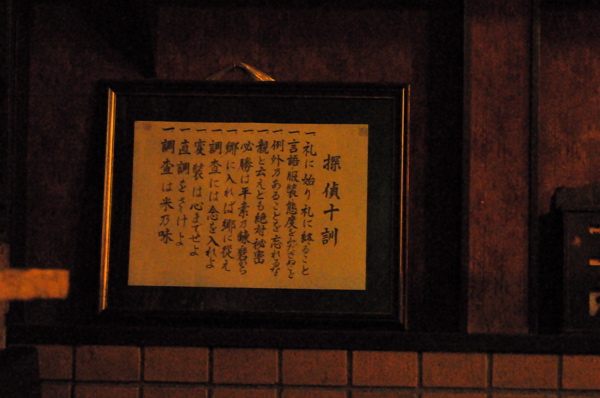 探偵十訓
一 礼に始り礼に終ること
一 言語服装態度をみださぬこと
一 例外乃あることを忘れるな
一 親と云えども絶対秘密
一 必勝は平素乃錬磨から
一 郷に入れば郷に従え
一 調査には念を入れよ
一 変装は心までせよ
一 直調をさけよ
一 調査は米乃味